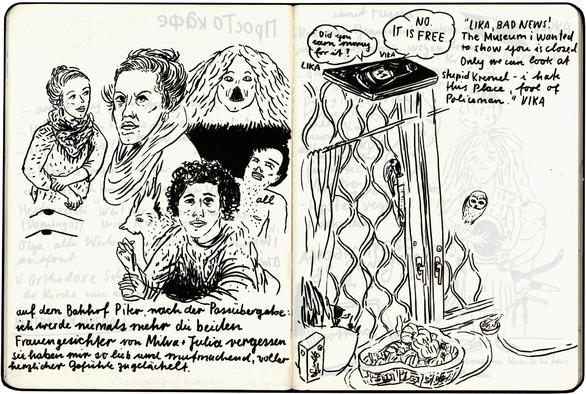 all
auf dem Bahhof Piter nach der Passübergabe:
ich werde niemals mehr die beiden
Frauengesichter von Milva + Julia vergessen
sie haben mir so lieb und mutmachend, voller
herzlicher Gefühle zugelächelt.
Did you
earn money
for it?
LIKA
NO.
IT IS FREE
VIKA
"LIKA, BAD NEWS!
The Museum i wanted
to show you is closed
Only we can look at
stupid Kremel - i hate
this Place, fool of
Policeman." VIKA